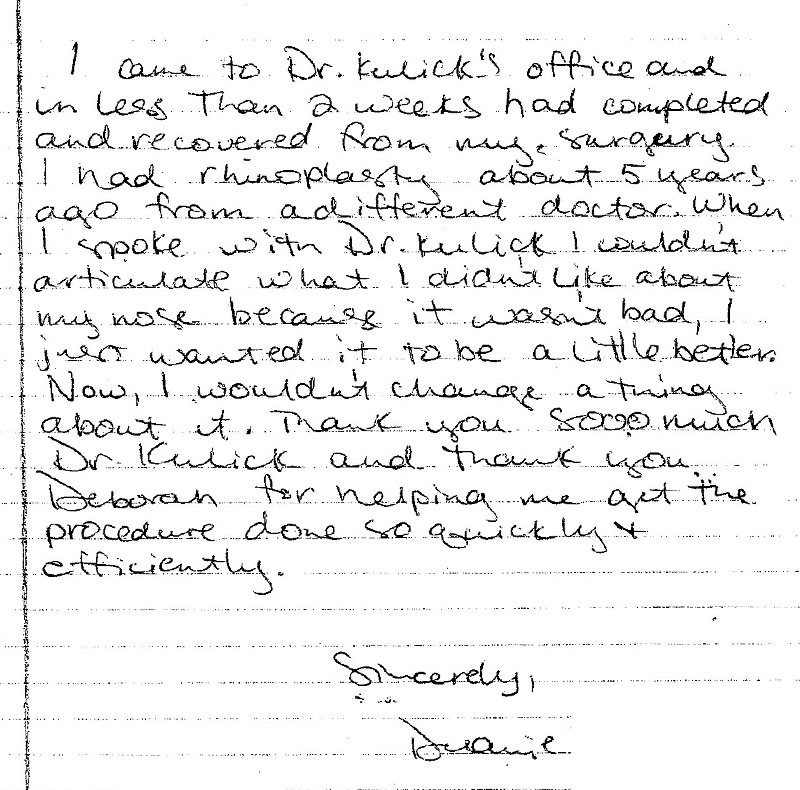 I came to Dr. Kulick's office and
in less than 2 weeks had completed
and recovered from my surgery.
I had rhinoplasty about 5 years
ago from a different doctor. When
I spoke with Dr. Kulick I couldn't
articulate what I didn't like about
my nose because it wasn't bad, I
just wanted it to be a little better.
Now, I wouldn't change a thing
about it. Thank you sooo much
Dr. Kulick and thank you
Deborah for helping me get the
procedure done so quickly &
efficiently.
Sincerely,